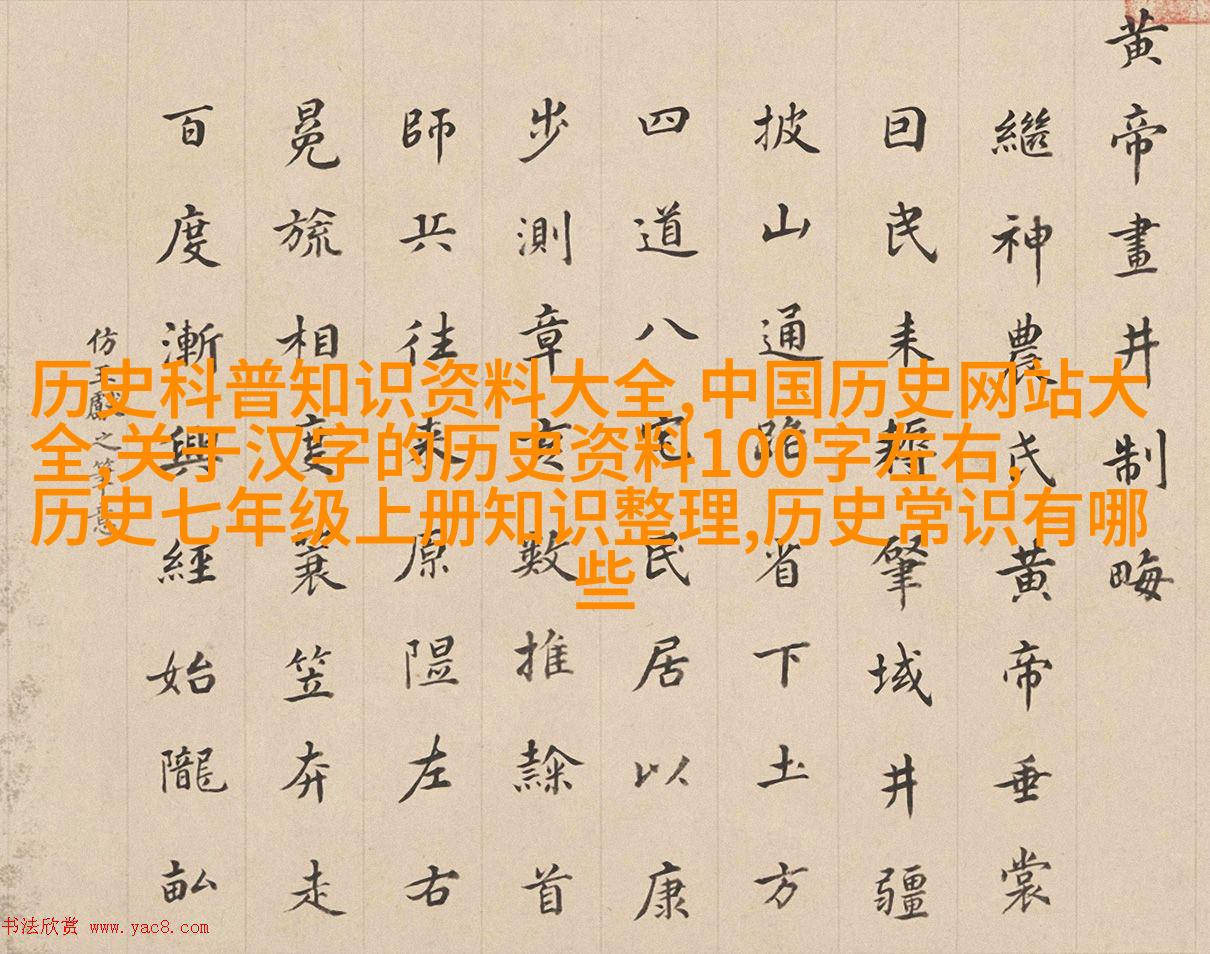 黄帝畫井制畮
繼神農氏黄帝垂裳
囙民耒耨肇域井疆
披山通路省下土方
四道八宅民居以康
步測章亥數推隸首
師兵往來原隰左右
冕旒相度蓑笠奔走
百度漸興經始隴畝
仿王獻之筆意
历史科普知识资料大全,中国历史网站大
全,关于汉字的历史资料100字左右,
历史七年级上册知识整理,历史常识有哪
些
书法欣赏 www.yac8.com